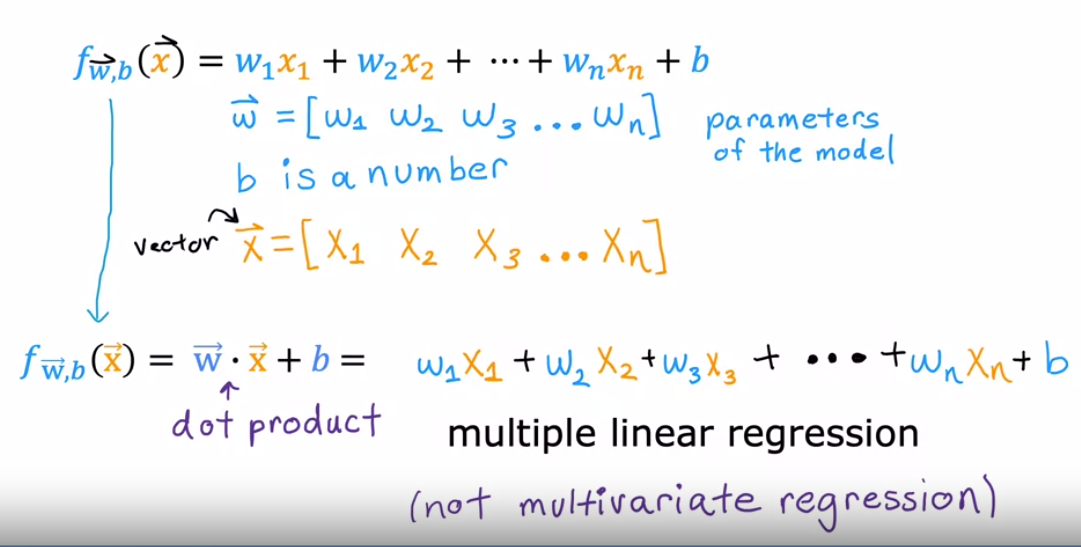 f_{w⃗,b}(x⃗) = w₁x₁ + w₂x₂ + ⋯ + wₙxₙ + b
w⃗ = [w₁ w₂ w₃ ... wₙ] parameters
of the model
b is a number
vector x⃗ = [x₁ x₂ x₃ ... xₙ]
f_{w⃗,b}(x⃗) = w⃗ · x⃗ + b = w₁x₁ + w₂x₂ + w₃x₃ + ⋯ + wₙxₙ + b
dot product
multiple linear regression
(not multivariate regression)